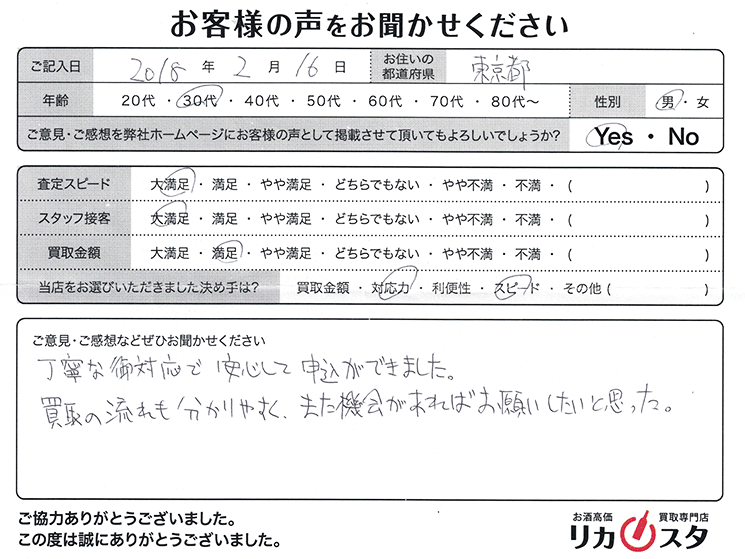 お客様の声をお聞かせください
ご記入日 2018 年 2 月 16 日 お住いの都道府県 東京都
年齢 20代 ・ 30代 ・ 40代 ・ 50代 ・ 60代 ・ 70代 ・ 80代〜 性別 男 ・ 女
ご意見・ご感想を弊社ホームページにお客様の声として掲載させて頂いてもよろしいでしょうか? Yes ・ No
査定スピード 大満足 ・ 満足 ・ やや満足 ・ どちらでもない ・ やや不満 ・ 不満 ・ ( )
スタッフ接客 大満足 ・ 満足 ・ やや満足 ・ どちらでもない ・ やや不満 ・ 不満 ・ ( )
買取金額 大満足 ・ 満足 ・ やや満足 ・ どちらでもない ・ やや不満 ・ 不満 ・ ( )
当店をお選びいただきました決め手は? 買取金額 ・ 対応力 ・ 利便性 ・ スピード ・ その他 ( )
ご意見・ご感想などぜひお聞かせください
丁寧な御対応で 安心して 申込ができました。
買取の流れも 分かりやすく、また機会があればお願いしたいと思った。
ご協力ありがとうございました。
この度は誠にありがとうございました。
お酒高価 買取専門店
リカスタ